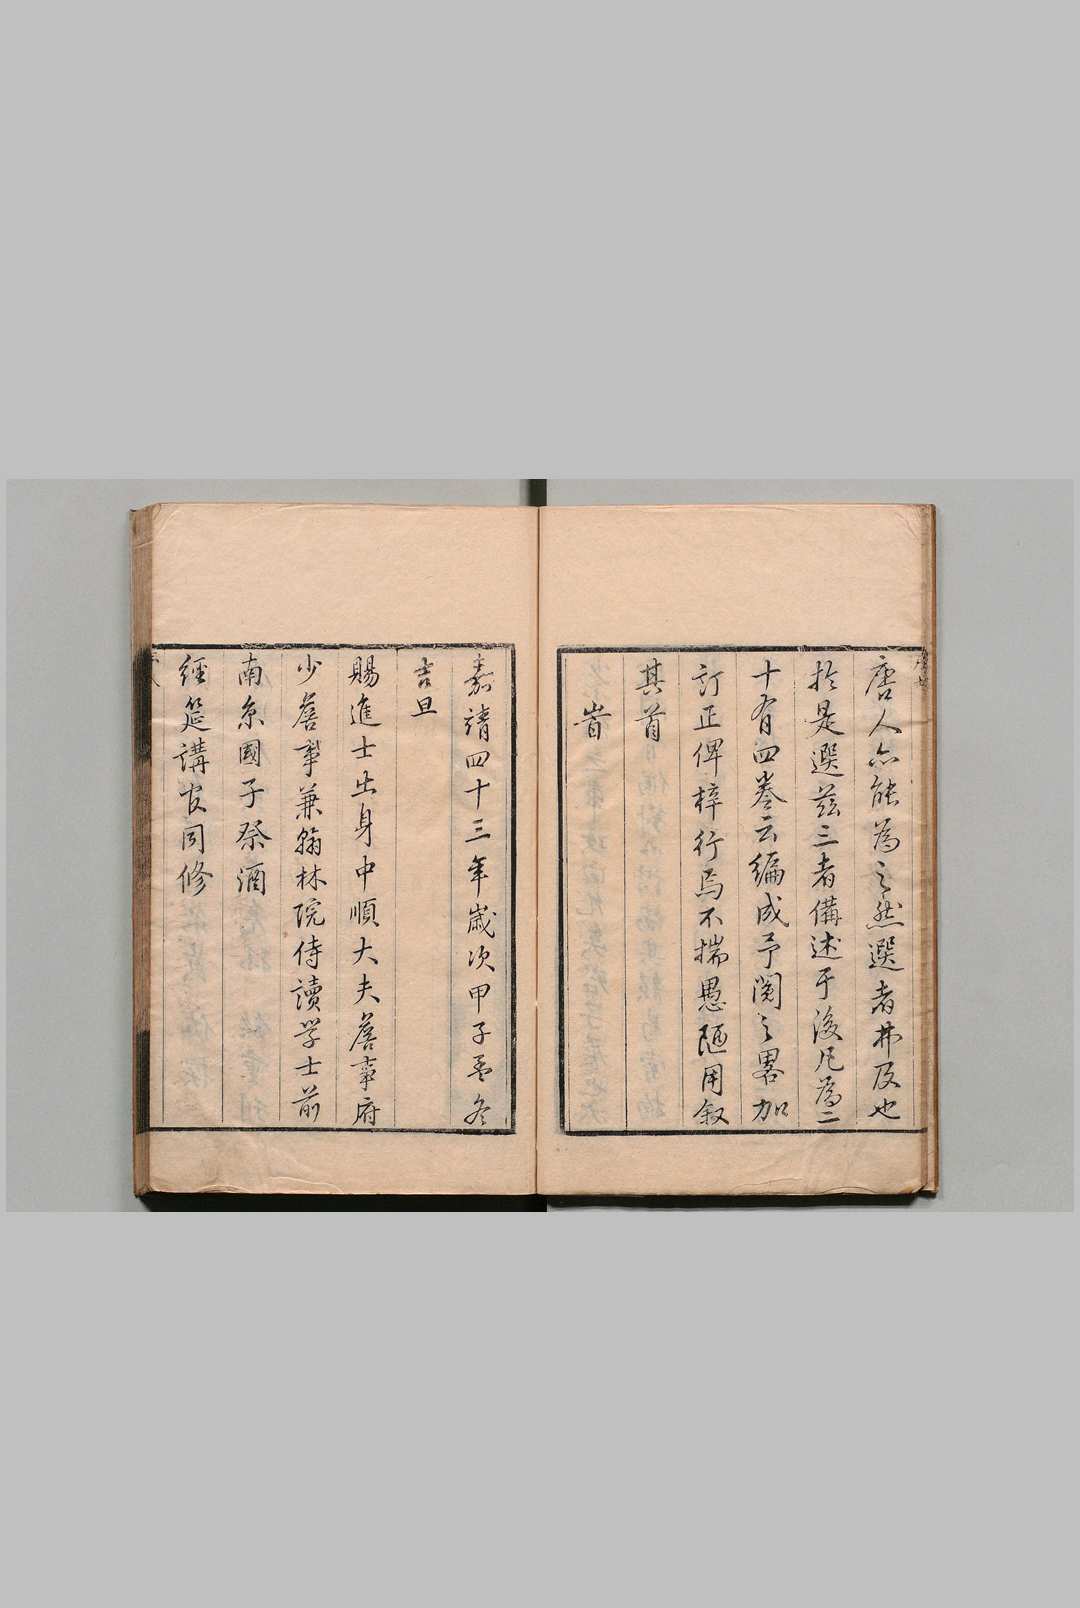 唐人亦能為之然選者弗及也
於是選茲三者備述于後凡為二
十有四卷云編成予閱之畧加
訂正俾梓行焉不揣愚陋用叙
其首
旹
嘉靖四十三年歲次甲子孟冬
吉旦
賜進士出身中順大夫詹事府
少詹事兼翰林院侍讀學士前
南京國子祭酒
經筵講官同修